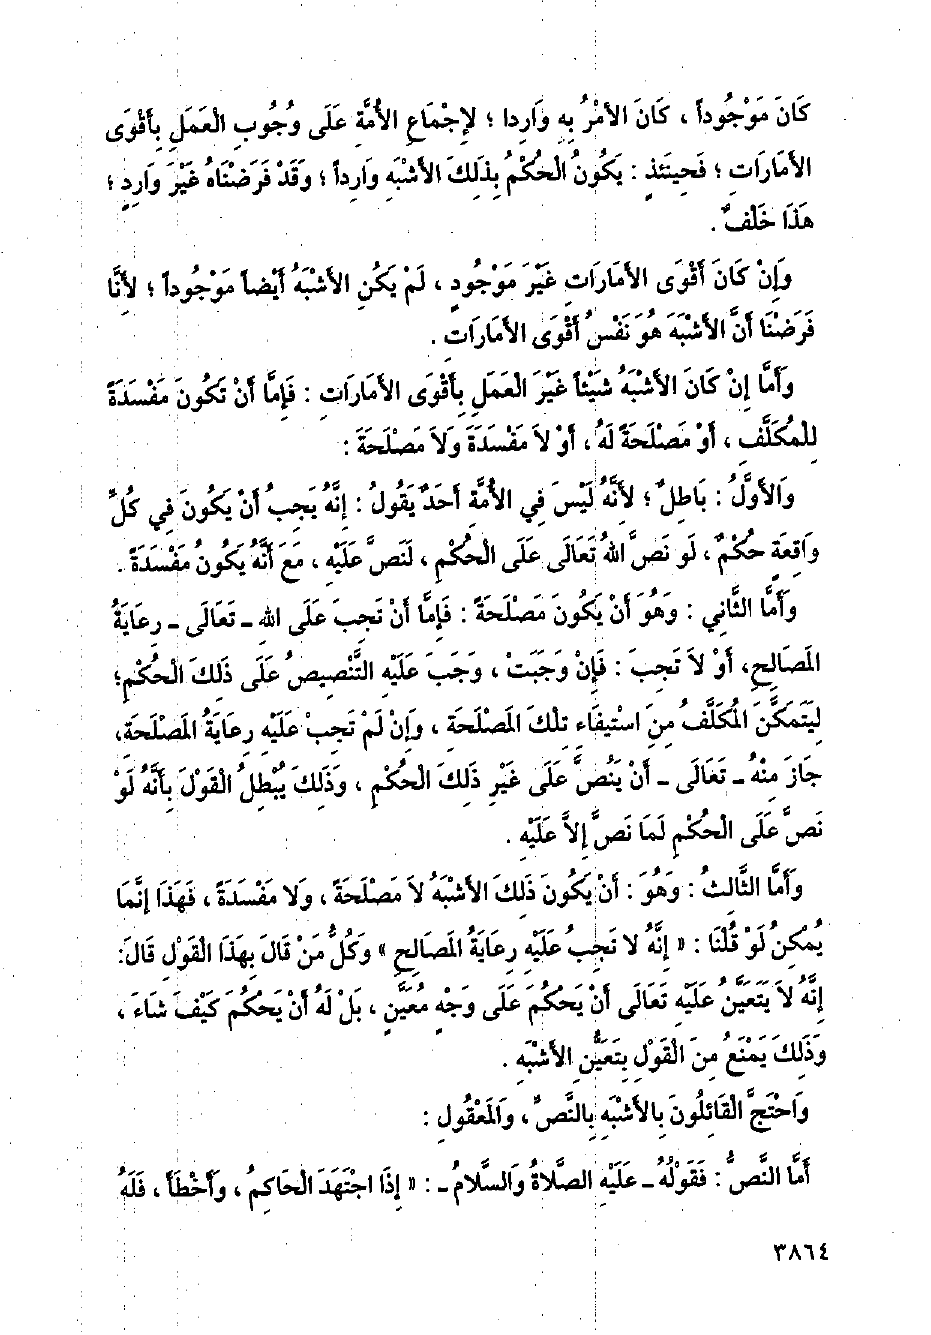 كَانَ مَوْجُوداً ، كَانَ الأَمْرُ بِهِ وَارِدا ؛ لإِجْمَاعِ الأُمَّةِ عَلَى وُجُوبِ الْعَمَلِ بِأَقْوَى
الأَمَارَاتِ ؛ فَحِينَئِذٍ : يَكُونُ الْحُكْمُ بِذَلِكَ الأَشْبَهِ وَارِداً ؛ وَقَدْ فَرَضْنَاهُ غَيْرَ وَارِدٍ ؛
هَذَا خَلْفٌ .
وَإِنْ كَانَ أَقْوَى الأَمَارَاتِ غَيْرَ مَوْجُودٍ ، لَمْ يَكُنِ الأَشْبَهُ أَيْضاً مَوْجُوداً ؛ لأَنَّا
فَرَضْنَا أَنَّ الأَشْبَهَ هُوَ نَفْسُ أَقْوَى الأَمَارَاتِ .
وَأَمَّا إِنْ كَانَ الأَشْبَهُ شَيْئاً غَيْرَ الْعَمَلِ بِأَقْوَى الأَمَارَاتِ : فَإِمَّا أَنْ تَكُونَ مَفْسَدَةً
لِلْمُكَلَّفِ ، أَوْ مَصْلَحَةً لَهُ ، أَوْ لاَ مَفْسَدَةَ وَلاَ مَصْلَحَةَ :
وَالأَوَّلُ : بَاطِلٌ ؛ لأَنَّهُ لَيْسَ فِي الأُمَّةِ أَحَدٌ يَقُولُ : إِنَّهُ يَجِبُ أَنْ يَكُونَ فِي كُلِّ
وَاقِعَةٍ حُكْمٌ ، لَو نَصَّ اللهُ تَعَالَى عَلَى الْحُكْمِ ، لَنَصَّ عَلَيْهِ ، مَعَ أَنَّهُ يَكُونُ مَفْسَدَةً .
وَأَمَّا الثَّانِي : وَهُوَ أَنْ يَكُونَ مَصْلَحَةً : فَإِمَّا أَنْ تَجِبَ عَلَى اللهِ ـ تَعَالَى ـ رِعَايَةُ
الْمَصَالِحِ، أَوْ لاَ تَجِبَ : فَإِنْ وَجَبَتْ ، وَجَبَ عَلَيْهِ التَّنْصِيصُ عَلَى ذَلِكَ الْحُكْمِ؛
لِيَتَمَكَّنَ الْمُكَلَّفُ مِنَ اسْتِيفَاءِ تِلْكَ الْمَصْلَحَةِ ، وَإِنْ لَمْ تَجِبْ عَلَيْهِ رِعَايَةُ الْمَصْلَحَةِ،
جَازَ مِنْهُ ـ تَعَالَى ـ أَنْ يَنُصَّ عَلَى غَيْرِ ذَلِكَ الْحُكْمِ ، وَذَلِكَ يُبْطِلُ الْقَوْلَ بِأَنَّهُ لَوْ
نَصَّ عَلَى الْحُكْمِ لَمَا نَصَّ إِلاَّ عَلَيْهِ .
وَأَمَّا الثَّالِثُ : وَهُوَ : أَنْ يَكُونَ ذَلِكَ الأَشْبَهُ لاَ مَصْلَحَةً ، وَلاَ مَفْسَدَةً ، فَهَذَا إِنَّمَا
يُمْكِنُ لَوْ قُلْنَا : « إِنَّهُ لا تَجِبُ عَلَيْهِ رِعَايَةُ الْمَصَالِحِ » وَكُلُّ مَنْ قَالَ بِهَذَا الْقَوْلِ قَالَ:
إِنَّهُ لاَ يَتَعَيَّنُ عَلَيْهِ تَعَالَى أَنْ يَحْكُمَ عَلَى وَجْهٍ مُعَيَّنٍ ، بَلْ لَهُ أَنْ يَحْكُمَ كَيْفَ شَاءَ ،
وَذَلِكَ يَمْنَعُ مِنَ الْقَوْلِ بِتَعَيُّنِ الأَشْبَهِ .
وَاحْتَجَّ الْقَائِلُونَ بِالأَشْبَهِ بِالنَّصِّ ، وَالْمَعْقُولِ :
أَمَّا النَّصُّ : فَقَوْلُهُ ـ عَلَيْهِ الصَّلاَةُ وَالسَّلاَمُ ـ : « إِذَا اجْتَهَدَ الْحَاكِمُ ، وَأَخْطَأَ ، فَلَهُ
٣٨٦٤